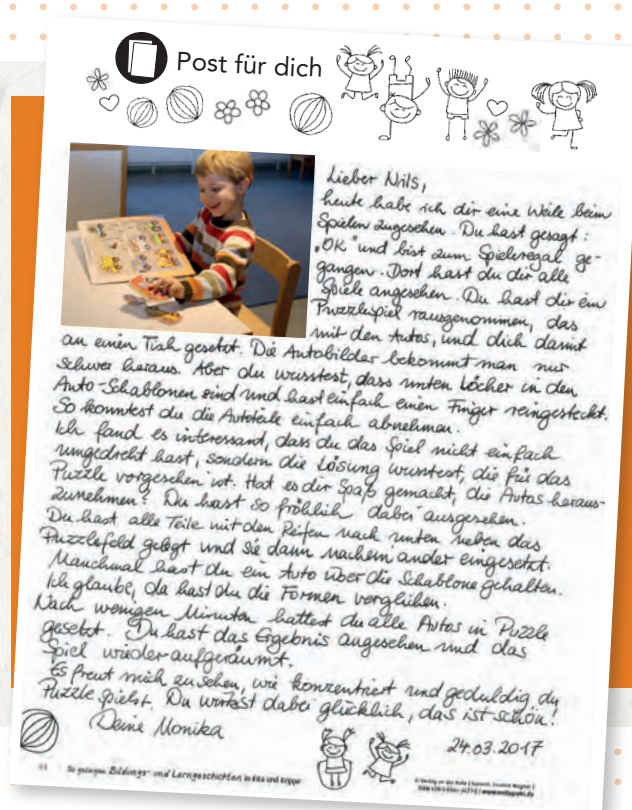 Post für dich
Lieber Nils,
heute habe ich dir eine Weile beim
Spielen zugesehen. Du hast gesagt:
„OK" und bist zum Spieleregal ge-
gangen. Dort hast du dir alle
Spiele angesehen. Du hast dir ein
Puzzlespiel rausgenommen, das
mit den Autos, und dich damit
an einen Tisch gesetzt. Die Autobilder bekommt man nur
schwer heraus. Aber du wusstest, dass unten Löcher in den
Auto-Schablonen sind und hast einfach einen Finger reingesteckt.
So konntest du die Autoteile einfach abnehmen.
Ich fand es interessant, dass du das Spiel nicht einfach
umgedreht hast, sondern die Lösung wusstest, die für das
Puzzle vorgesehen ist. Hat es dir Spaß gemacht, die Autos heraus-
zunehmen? Du hast so fröhlich dabei ausgesehen.
Du hast alle Teile mit den Reifen nach unten neben das
Puzzlefeld gelegt und sie dann nacheinander eingesetzt.
Manchmal hast du ein Auto über die Schablone gehalten.
Ich glaube, da hast du die Formen verglichen.
Nach wenigen Minuten hattest du alle Autos in Puzzle
gesetzt. Du hast das Ergebnis angesehen und das
Spiel wieder aufgeräumt.
Es freut mich zu sehen, wie konzentriert und geduldig du
Puzzle spielst. Du wirkst dabei glücklich, das ist schön!
Deine Monika
24.03.2017
So gelingen Bildungs- und Lerngeschichten in Kita und Krippe
© Verlag an der Ruhr |